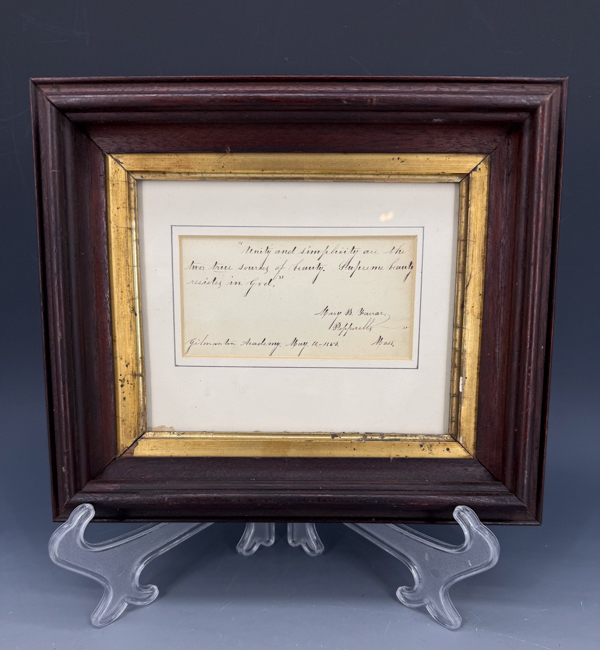 "Unity and simplicity are the
two true sources of beauty. Supreme beauty
resides in God."
Mary B. Farrar,
Pepperell
Gilmanton Academy, May 12 - 1852. Mass